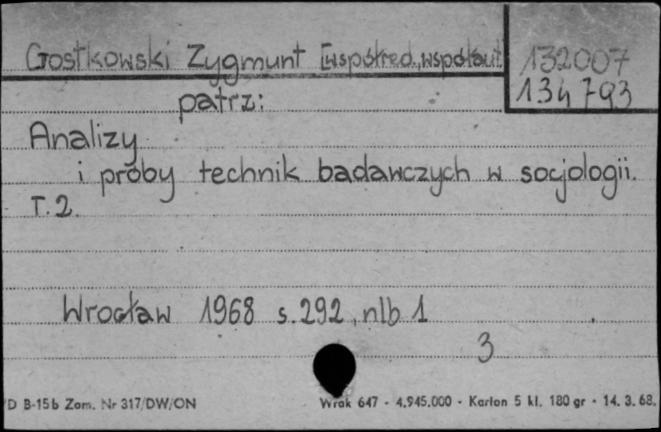 Gostkowski Zygmunt [współred., współaut.
132007
134793
patrz:
Analizy
i próby technik badawczych w socjologii.
T. 2.
Wrocław 1968 s. 292, nlb 1
3
D B-15b Zam. Nr 317/DW/ON
Wrak 647 - 4.945.000 - Karton 5 kl. 180 gr - 14. 3. 68.